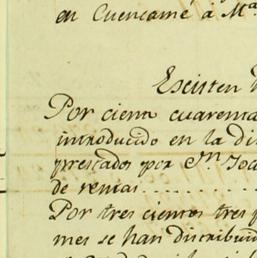 en Cuencamé á Ma
Existen
Por cien cuarenta
introducido en la di
prestados por Jn Joa
de rentas
Por tres cientos tres p
mes se han distribuid